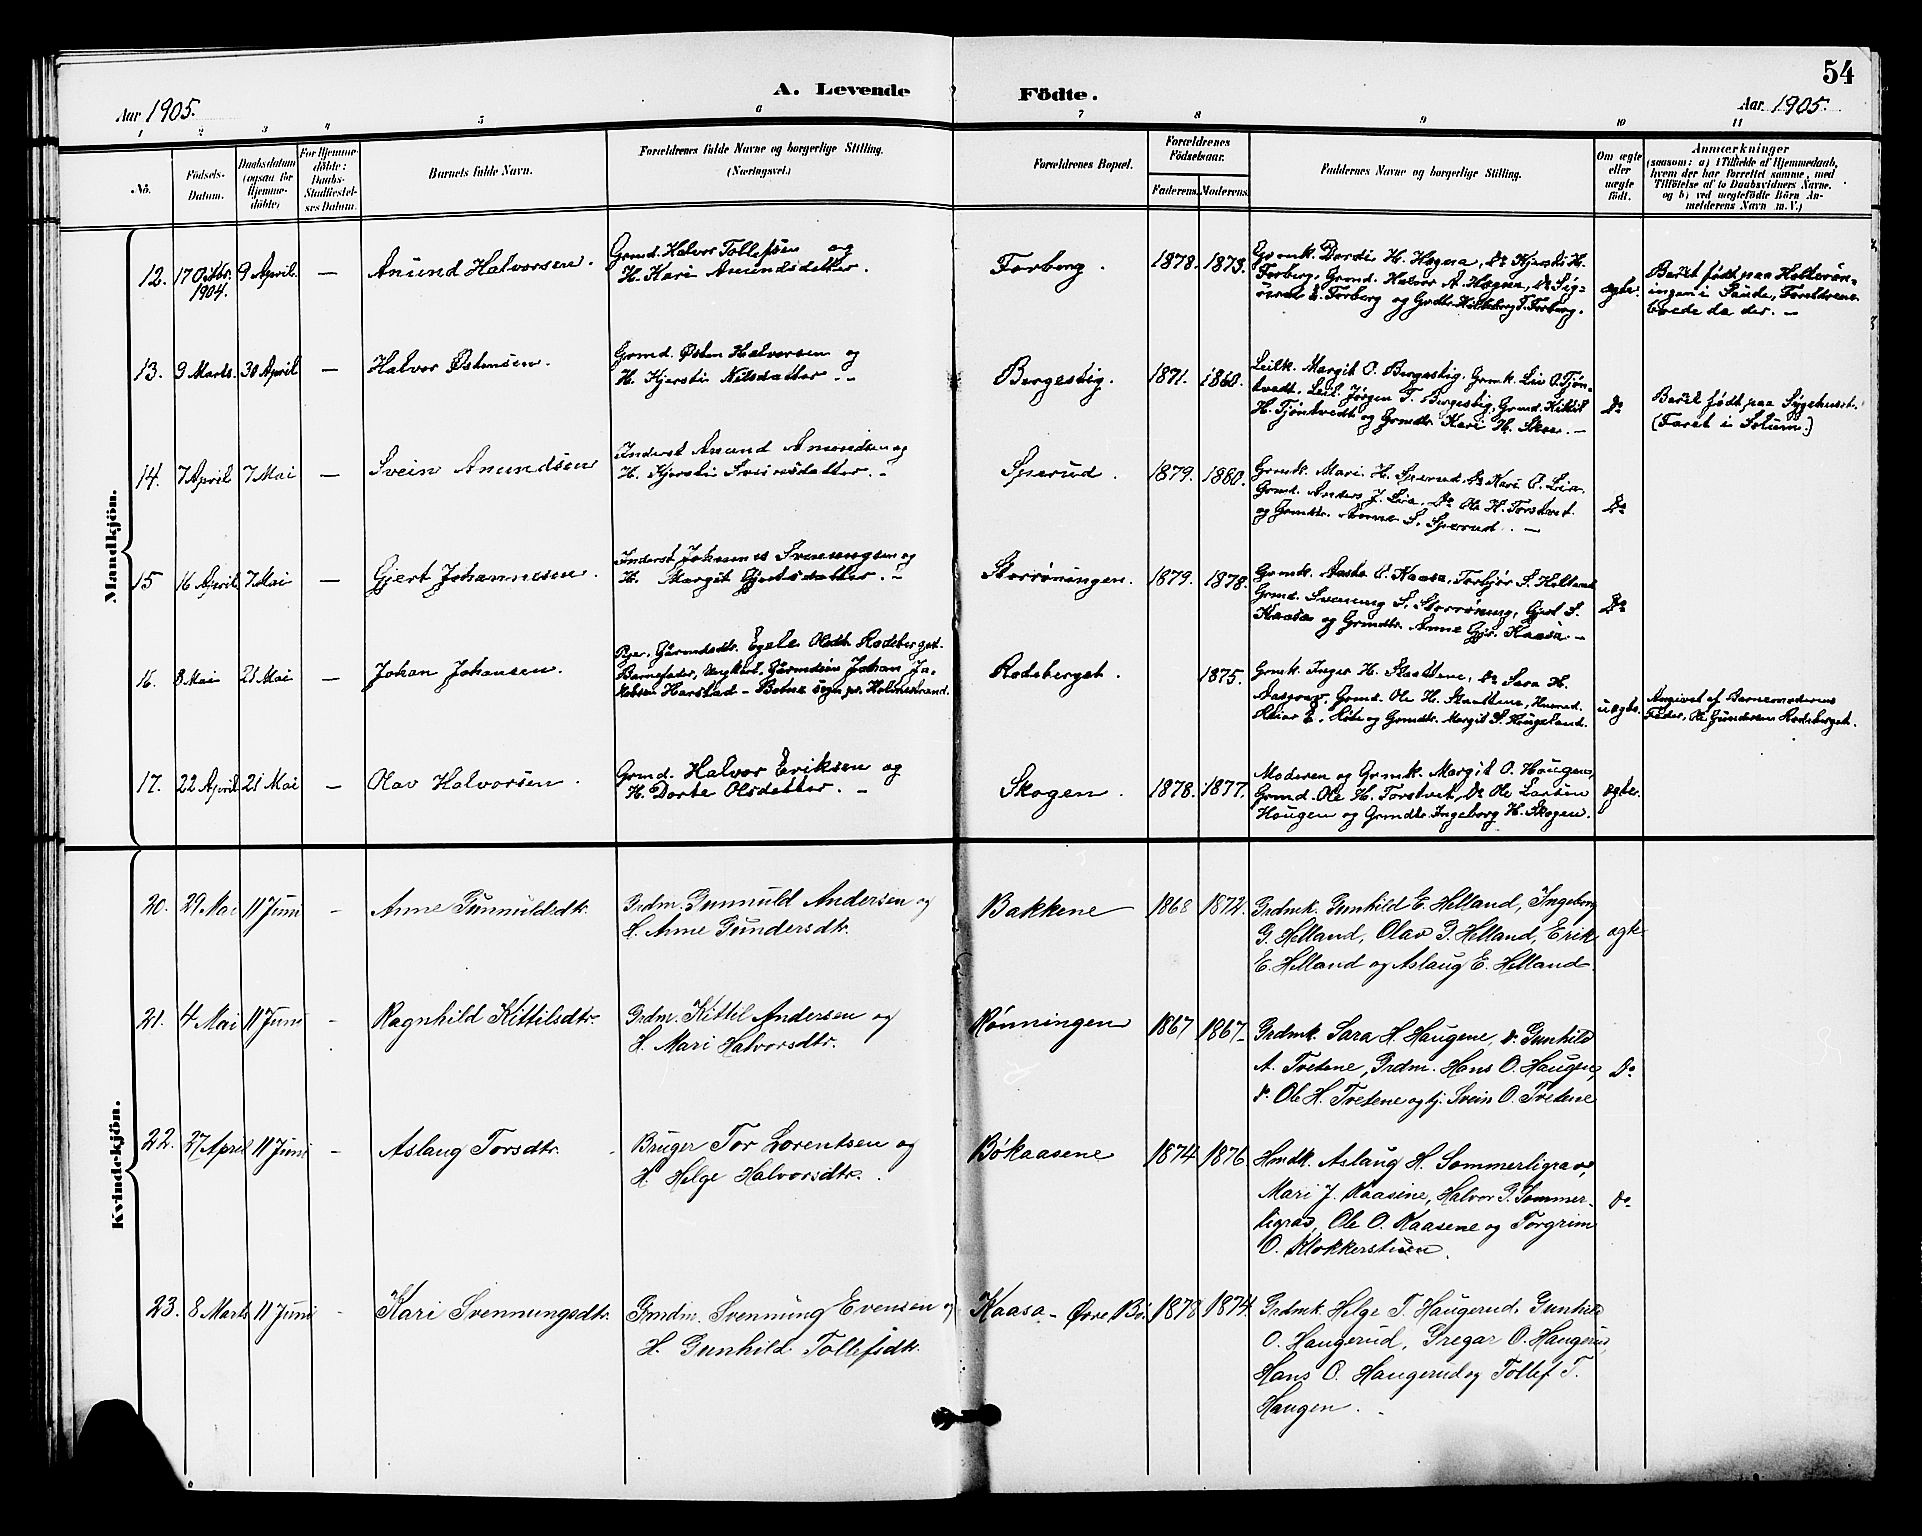 54
Aar 1905.
A. Levende Födte.
Aar 1905.
1 2 3 4 5 6 7 8 9 10 11
No.
Födsels-
Datum.
Daabsdatum
(ogsaa for
Hjemme-
döbte)
For Hjemme-
döbte:
Daabs-
Stadfæstel-
ses Datum.
Barnets fulde Navn.
Forældrenes fulde Navne og borgerlige Stilling.
(Næringsvei.)
Forældrenes Bopæl.
Forældrenes
Födselsaar.
Faderens. Moderens.
Faddernes Navne og borgerlige Stilling.
Om ægte
eller
uægte
födt.
Anmærkninger
(saasom: a) i Tilfælde af Hjemmedaab,
hvem der har forrettet samme, med
Tilföielse af to Daabsvidners Navne,
og b) ved uægtefödte Börn An-
melderens Navn m. V.)
Mandkjön.
12. 17 Oktbr. 1904. 9 April. — Anund Halvorsen.
Grmd. Halvor Tollefsen og
H. Kari Amundsdatter.
Forberg. 1878. 1873.
Grmk. Dordi H. Hogna, Do Kjersti H.
Forberg, Grmd. Halvor A. Hogna, Do Sig-
urd E. Forberg og Grdtr. Hilleborg T. Forberg.
ægte.
Barnet født paa Holterøn-
ingen i Saude, Forældrene
boede da der. —
13. 9 Marts. 30 April — Halvor Østensen.
Grmd. Østen Halvorsen og
H. Kjersti Nilsdatter. —
Bergestig. 1871. 1860.
Leilk. Margit O. Bergestig, Grmk. Liv O. Tjøn-
tvedt, Leil. Jørgen T. Bergestig, Grmd. Kittil
H. Tjøntvedt og Grmdtr. Kari H. Skoe. —
Do
Barnet født paa Sygehuset.
(Faret i Solum.)
14. 7 April 7 Mai — Svein Anundsen
Inderst Anund Amundsen og
H. Kjersti Sveinsdatter. —
Sperud 1879. 1880.
Grmk. Mari H. Sperud, Do Kari O. Lia.
Grmd. Anders J. Lia, Do Ole H. Torstvet
og Grmdtr. Anne S. Sperud. —
Do
15 16 April 7 Mai — Gjert Johannesen.
Inderst Johannes Svenungsen og
H. Margit Gjertsdatter. —
Storrøningen. 1879. 1878.
Grmk. Aaste O. Kaasa, Torbjør S. Helland
Grmd. Svenung S. Storrøning, Gjert S.
Kaasa og Grmdtr. Anne Gjs. Kaasa —
Do
16. 8 Mai 21 Mai — Johan Johansen.
Pige, Gaarmdsdtr. Egele Olsdtr. Rodeberget.
Barnefader, Ungkarl, Gaarmdsøn Johan Ja-
kobsen Harstad — Botne sogn pr. Holmestrand.
Rodeberget. 1875.
Grmk. Inger H. Staastene, Do Sara H.
Aasgrav, Grmd. Ole H. Staastene, Husmd.
Reiar E. Lote og Grmdtr. Margit S. Haugeland.
uægte.
Angivet af Barnemoderens
Fader, Ole Gundersen Rodeberget.
17. 22 April 21 Mai — Olav Halvorsen.
Grmd. Halvor Eriksen og
H. Dorte Olsdatter. —
Skogen. 1878. 1877.
Moderen og Grmk. Margit O. Haugen,
Grmd. Ole H. Torstvet, Do Ole Larsen
Haugen og Grmdtr. Ingeborg H. Skogen.
ægte.
Kvindekjön.
20. 29 Mai 11 Juni — Anne Gunnuldsdtr.
Grdm. Gunnuld Andersen og
H. Anne Gundersdtr.
Bakkene 1868 1872.
Grdmk. Gunhild E. Helland, Ingeborg
G. Helland, Olav G. Helland, Erik
E. Helland og Aslaug E. Helland.
ægte.
21. 4 Mai 11 Juni — Ragnhild Kittilsdtr.
Grdm. Kittil Andersen og
H. Mari Halvorsdtr.
Rønningen 1867 1867.
Grdmk. Sara H. Haugene, Do Gunhild
A. Tvetene, Grdm. Hans O. Haugen,
Do Ole H. Tvetene og tj. Svein O. Tvetene
Do
22. 27 April 11 Juni — Aslaug Torsdtr.
Bruger Tor Lorentsen og
H. Helge Halvorsdtr.
Bøkaasene 1874 1876
Hmdk. Aslaug H. Sommerligrav,
Mari J. Kaasine, Halvor G. Sommer-
ligrav, Ole O. Kaasene og Torgrim
O. Klokkerstuen.
Do
23. 8 Marts 11 Juni — Kari Svennungsdtr.
Grmdm. Svennung Evensen og
H. Gunhild Tollefsdtr.
Kaasa — Øvre Bø. 1878 1874
Grdmk. Helge T. Haugerud, Gunhild
O. Haugerud, Gregar O. Haugerud,
Hans O. Haugerud og Tollef T.
Haugen.